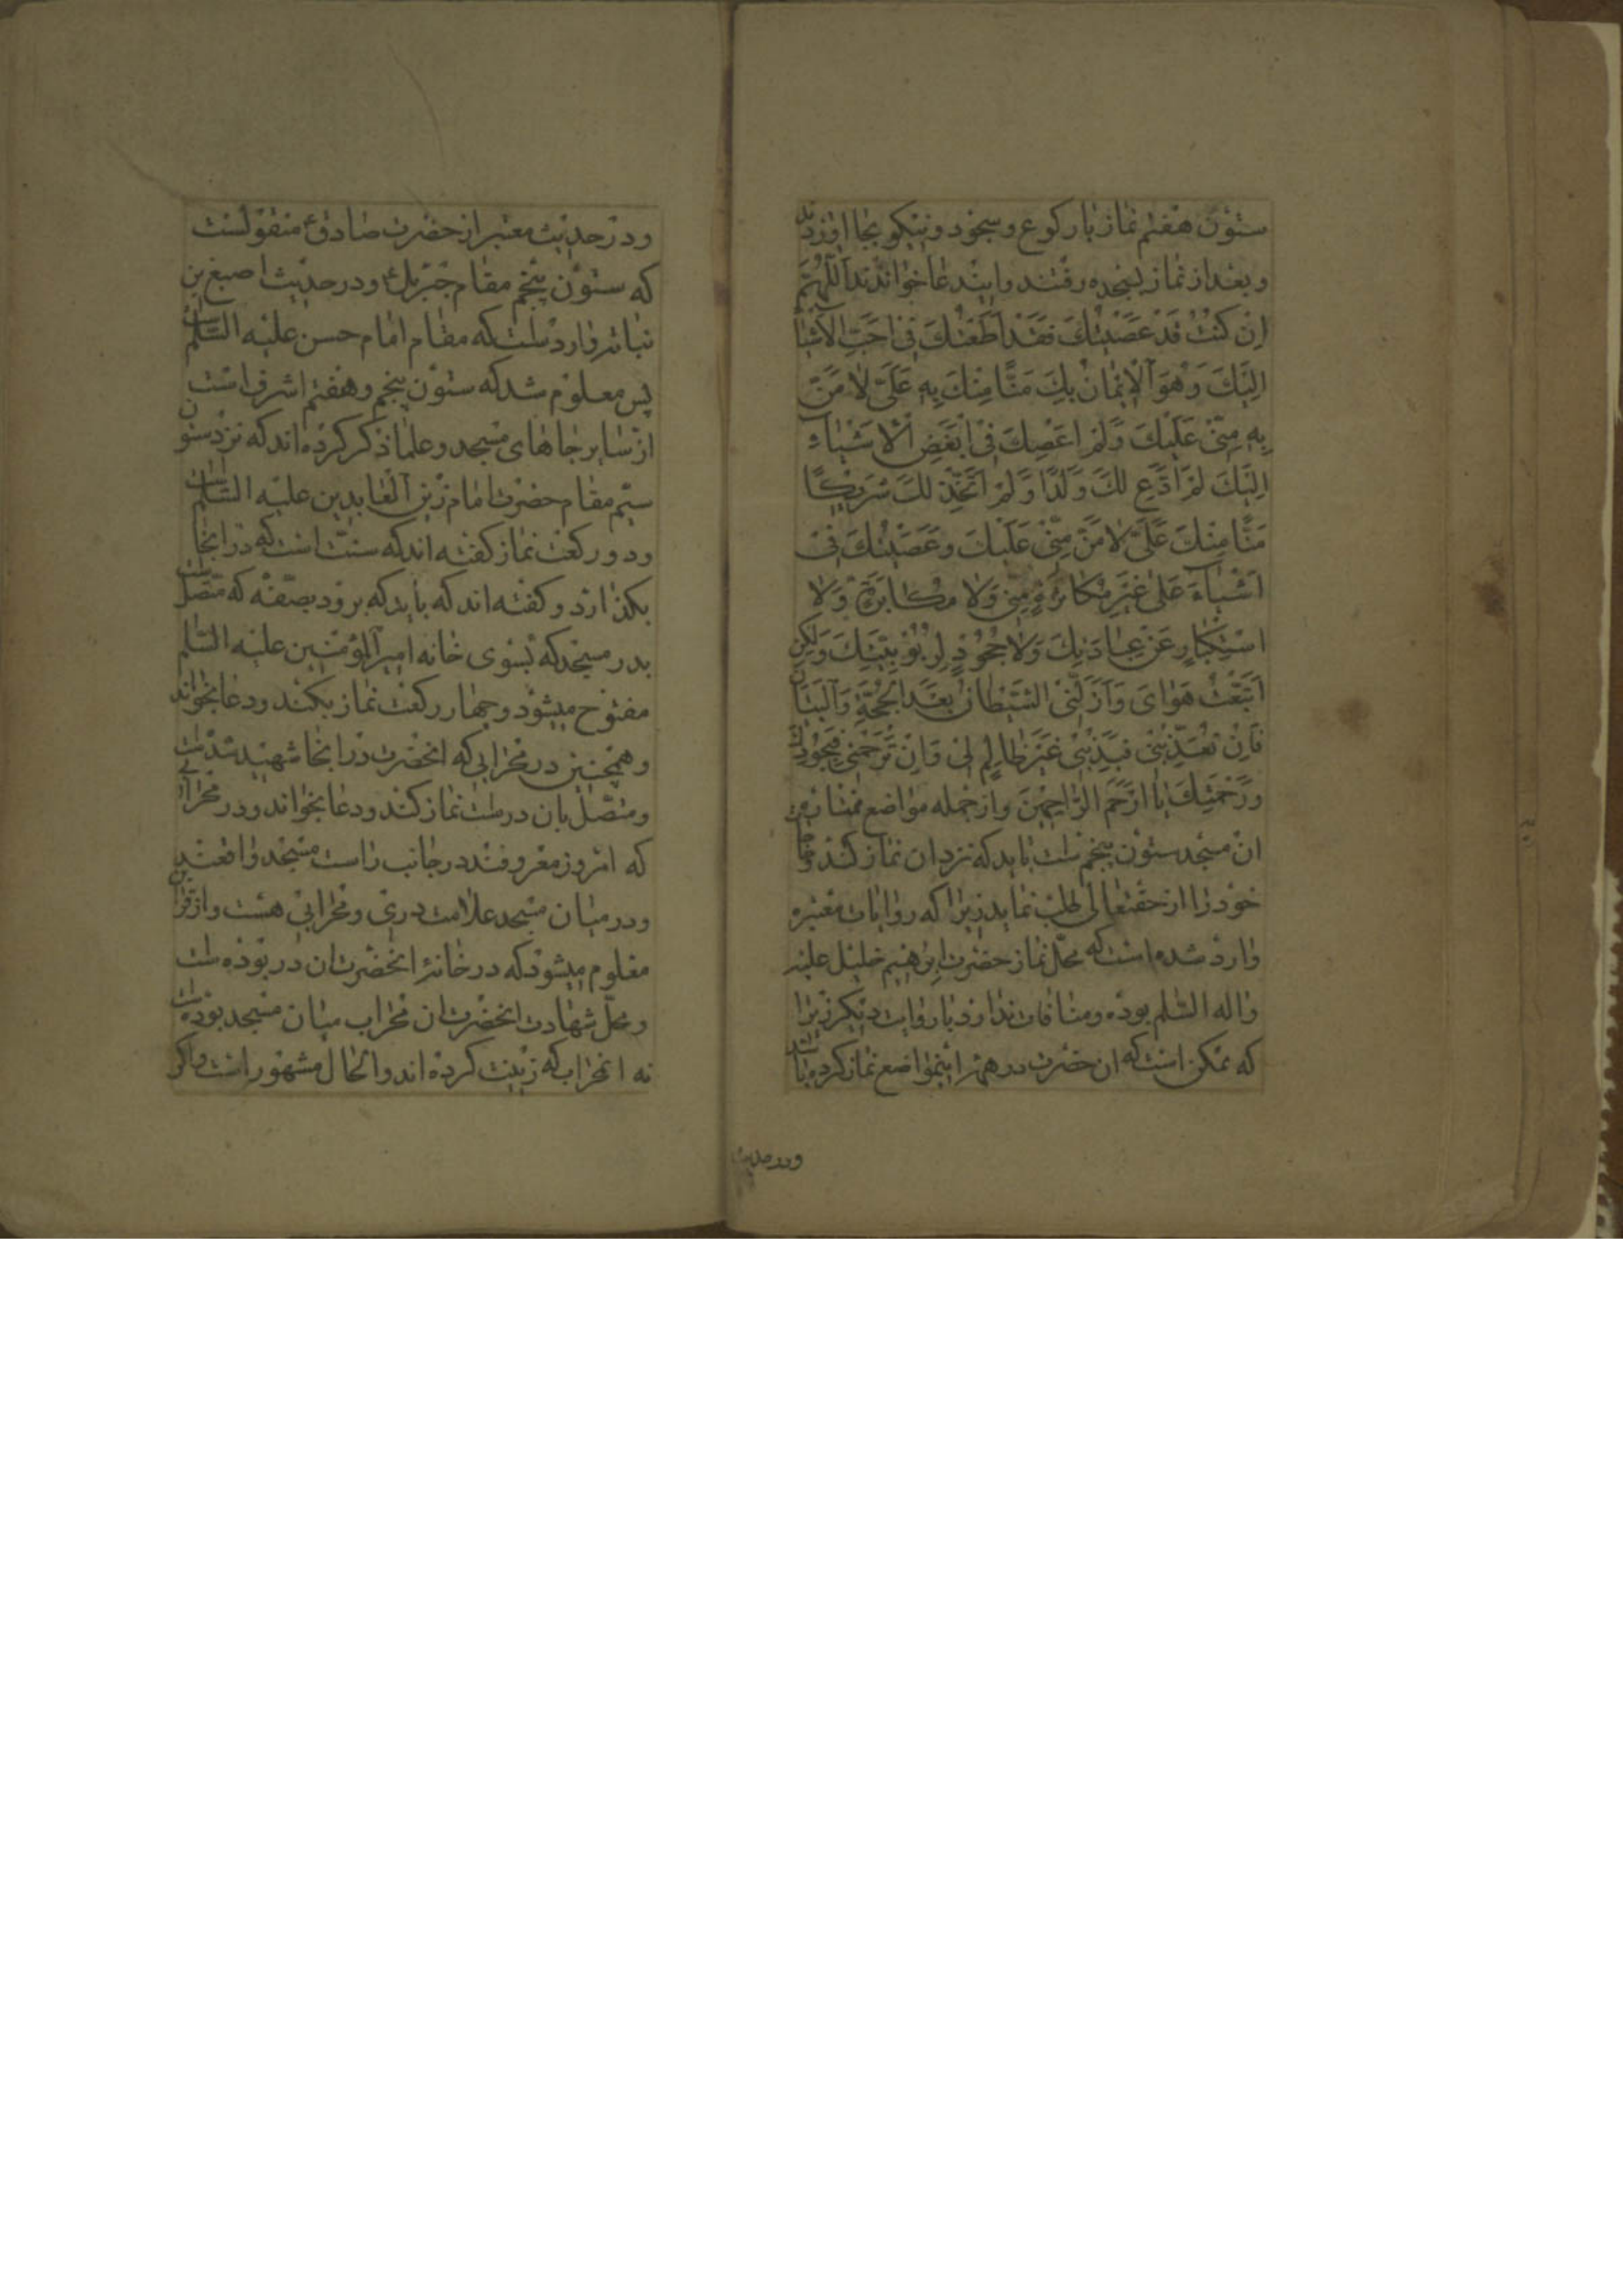 ستون هفتم نماز با رکوع و سجود و نیکو بجا اوردند
و بعد از نماز بسجده رفتند و ایندعا خواندند اَللّهُمَّ
اِنْ کُنْتُ قَدْ عَصَیْتُكَ فَقَدْ اَطَعْتُكَ فِی اَحَبِّ الْاَشْیاءِ
اِلَیْكَ وَهُوَ الْایمانُ بِكَ مَنًّا مِنْكَ بِهِ عَلَیَّ لا مَنَّ
بِهِ مِنّی عَلَیْكَ وَلَمْ اَعْصِكَ فی اَبْغَضِ الْاَشْیاءِ
اِلَیْكَ لَمْ اَدَّعِ لَكَ وَلَدًا وَلَمْ اَتَّخِذْ لَكَ شَریکًا
مَنًّا مِنْكَ عَلَیَّ لا مَنَّ مِنّی عَلَیْكَ وَعَصَیْتُكَ فی
اَشْیاءَ عَلی غَیْرِ مُکاثَرَةٍ مِنّی وَلا مُکابَرَةٍ وَلا
اسْتِکْبارٍ عَنْ عِبادَتِكَ وَلا جُحُودٍ لِرُبُوبِیَّتِكَ وَلکِنِ
اتَّبَعْتُ هَوایَ وَاَزَلَّنِی الشَّیْطانُ بَعْدَ الْحُجَّةِ وَالْبَیانِ
فَاِنْ تُعَذِّبْنی فَبِذَنْبی غَیْرَ ظالِمٍ لی وَاِنْ تَرْحَمْنی فَبِجُودِكَ
وَرَحْمَتِكَ یا اَرْحَمَ الرّاحِمینَ و از جمله مواضع ممتاز
ان مسجد ستون پنجم است باید که نزد ان نماز کند و
خود را از حقتعالی طلب نماید زیرا که روایات معتبره
وارد شده است که محل نماز حضرت ابرهیم خلیل علیه
واله السّلم بوده و منافات ندارد با روایات دیگر زیرا
که ممکن است که ان حضرت در همه اینمواضع نماز کرده باشد
ودر حدیث
ودر حدیث معتبر از حضرت صادق ع منقولست
که ستون پنجم مقام جبرئل ع و در حدیث اصبغ بن
نباته وارد است که مقام امام حسن علیه السّلم است
پس معلوم شد که ستون پنجم و هفتم اشرف است
از سایر جاهای مسجد و علما ذکر کرده اند که نزد ستون
سیّم مقام حضرت امام زین العابدین علیه السّلم است
و دو رکعت نماز گفته اند که سنّت است که در اینجا
بگذارد و گفته اند که باید که برود بصفّه که متّصل است
بدر مسجد که بسوی خانه امیر المؤمنین علیه السّلم
مفتوح میشود و چهار رکعت نماز بکند و دعا بخواند
و همچنین در محرابی که انحضرت در انجا شهید شده است
و متّصل بان در است نماز کند و دعا بخواند و در محرابی
که امروز معروفند در جانب راست مسجد واقعند
و در میان مسجد علامت دری و محرابی هست و از قراین
معلوم میشود که در خانهٔ انحضرت ان در بوده است
و محلّ شهادت انحضرت ان محراب میان مسجد بوده است
نه انمحراب که زینت کرده اند و الحال مشهور است و اکر